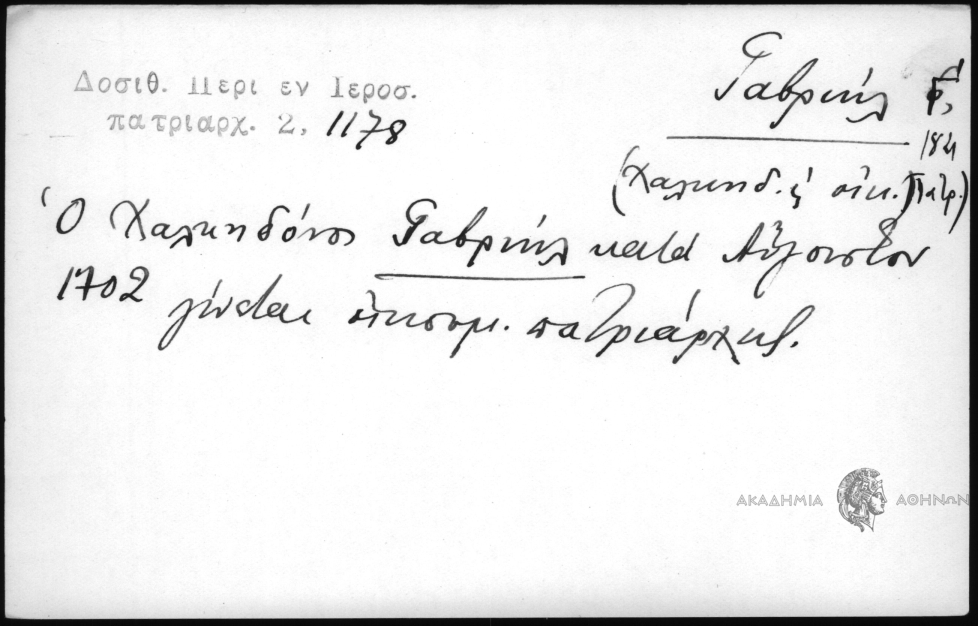 Δοσιθ. Περι εν Ιεροσ.
πατριαρχ. 2, 1178
Γαβριήλ Γ',
(Χαλκηδ. & οἰκ. Πατρ.)
Ὁ Χαλκηδόνος Γαβριήλ κατά Αὔγουστον
1702 γίνεται οἰκουμ. πατριάρχης.
ΑΚΑΔΗΜΙΑ ΑΘΗΝΩΝ